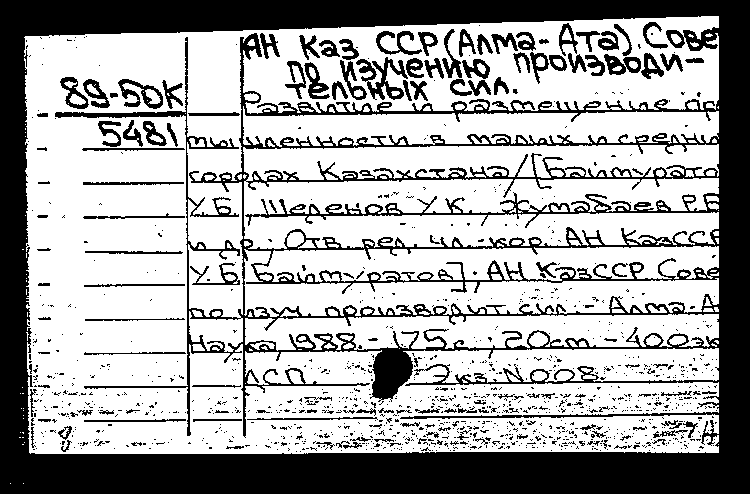 АН Каз ССР (Алма-Ата). Сове
по изучению производи-
тельных сил.
89-50К
5481
Развитие и размещение пр
мышленности в малых и средни
городах Казахстана/[Баймурато
У.Б., Шеденов У.К., Жумабаев Р.Б
и др.; Отв. ред. чл.-кор. АН КазССР
У.Б Баймуратов]; АН КазССР Сове
по изуч. производит. сил. - Алма-А
Наука, 1988. - 175 с.; 20 см. - 400 эк
ДСП. Экз. N 008.